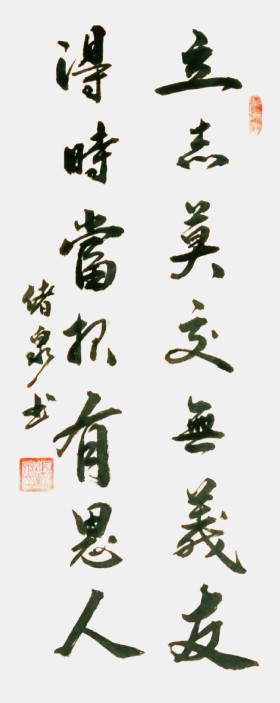 立志莫交無義友
得時當报有恩人
緒泉书